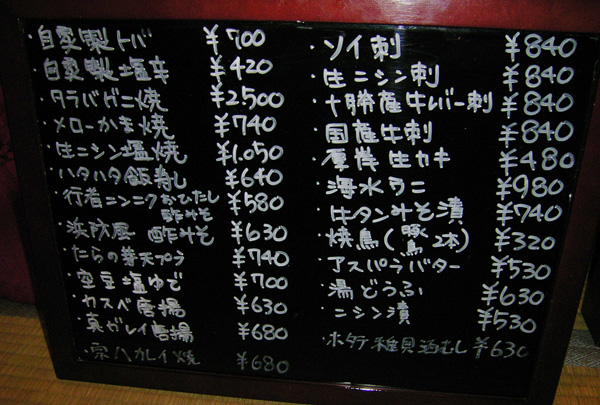 自家製トバ ¥700
自家製塩辛 ¥420
・タラバガニ焼 ¥2,500
・メローかま焼 ¥740
・生ニシン塩焼 ¥1,050
・ハタハタ飯寿し ¥640
・行者ニンニクおひたし ¥580
酢みそ
・浜防風 酢みそ ¥630
・たらの芽天プラ ¥740
・空豆塩ゆで ¥700
・カスベ唐揚 ¥630
・真ガレイ唐揚 ¥680
・宗八カレイ焼 ¥680
・ソイ刺 ¥840
・生ニシン刺 ¥840
・十勝産牛レバー刺 ¥840
・国産牛刺 ¥840
・厚岸生カキ ¥480
・海水うに ¥980
・牛タンみそ漬 ¥740
・焼鳥(豚鳥 2本) ¥320
・アスパラバター ¥530
・湯どうふ ¥630
・ニシン漬 ¥530
・ホタテ稚貝酒むし ¥630